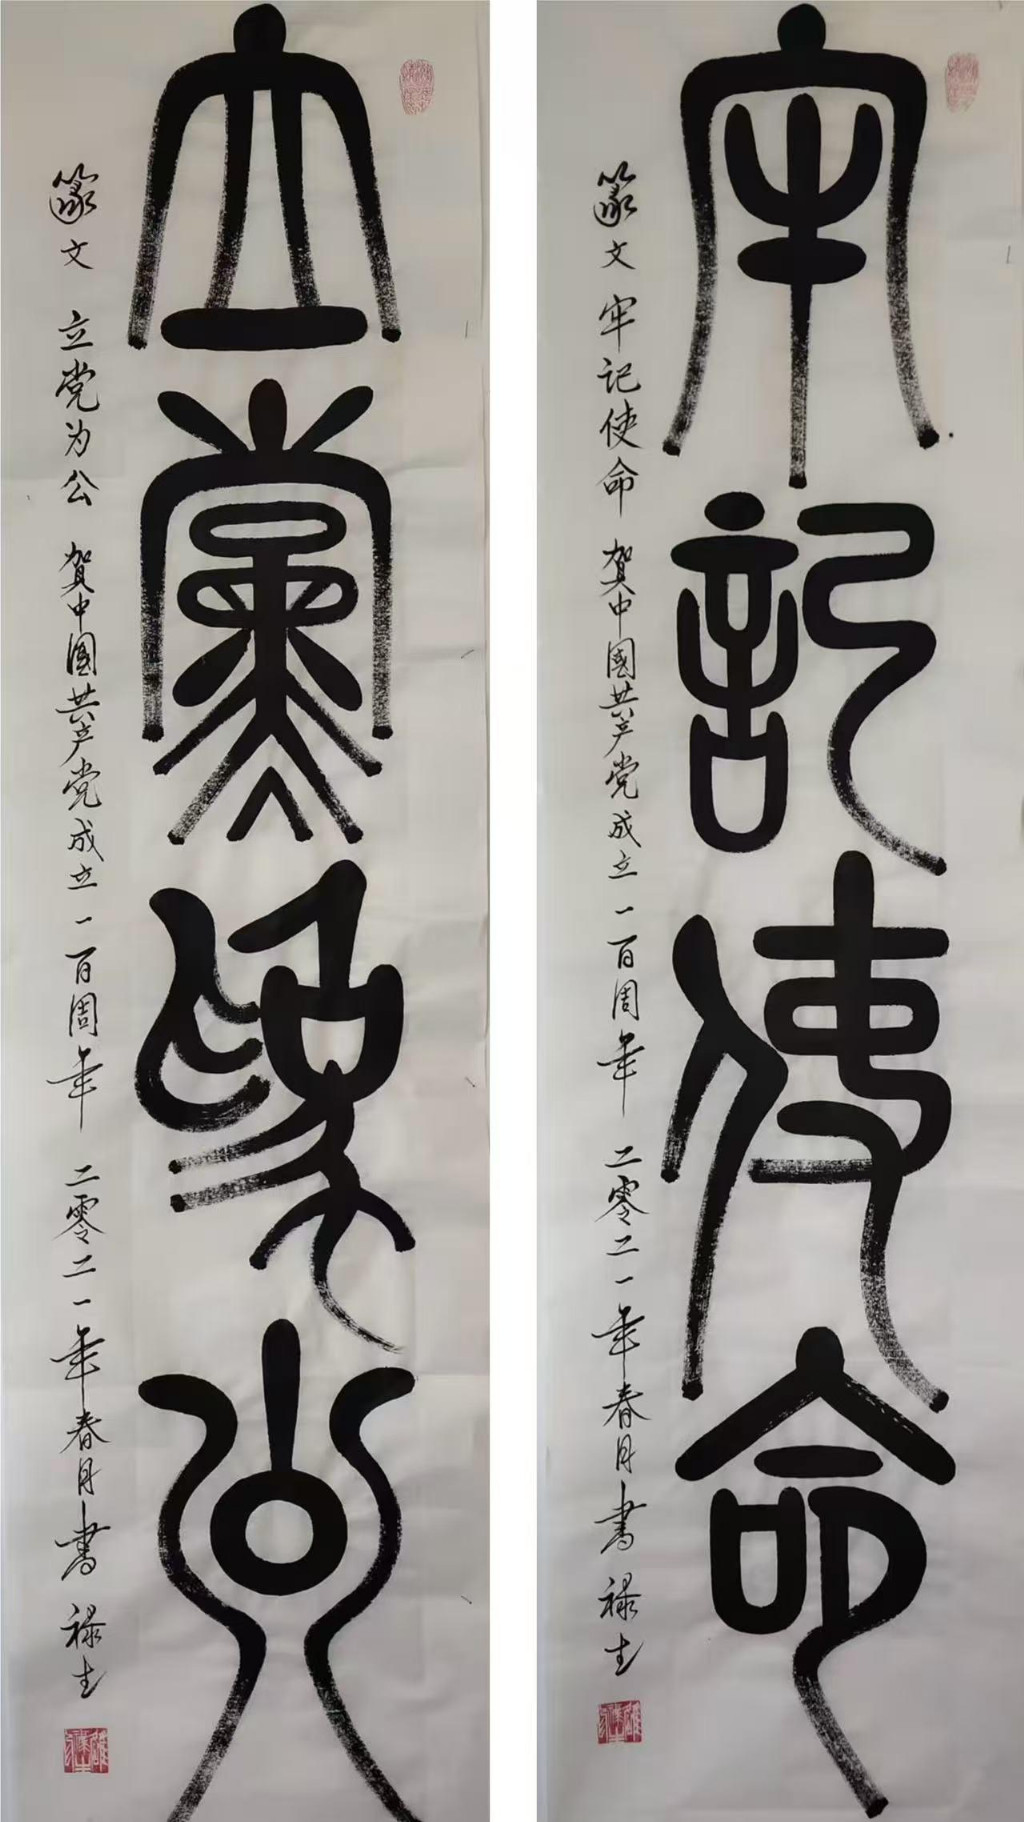 牢記使命
篆文 牢记使命 贺中國共产党成立一百周年 二零二一年春月書 禄生
立黨為公
篆文 立党为公 贺中國共产党成立一百周年 二零二一年春月書 禄生